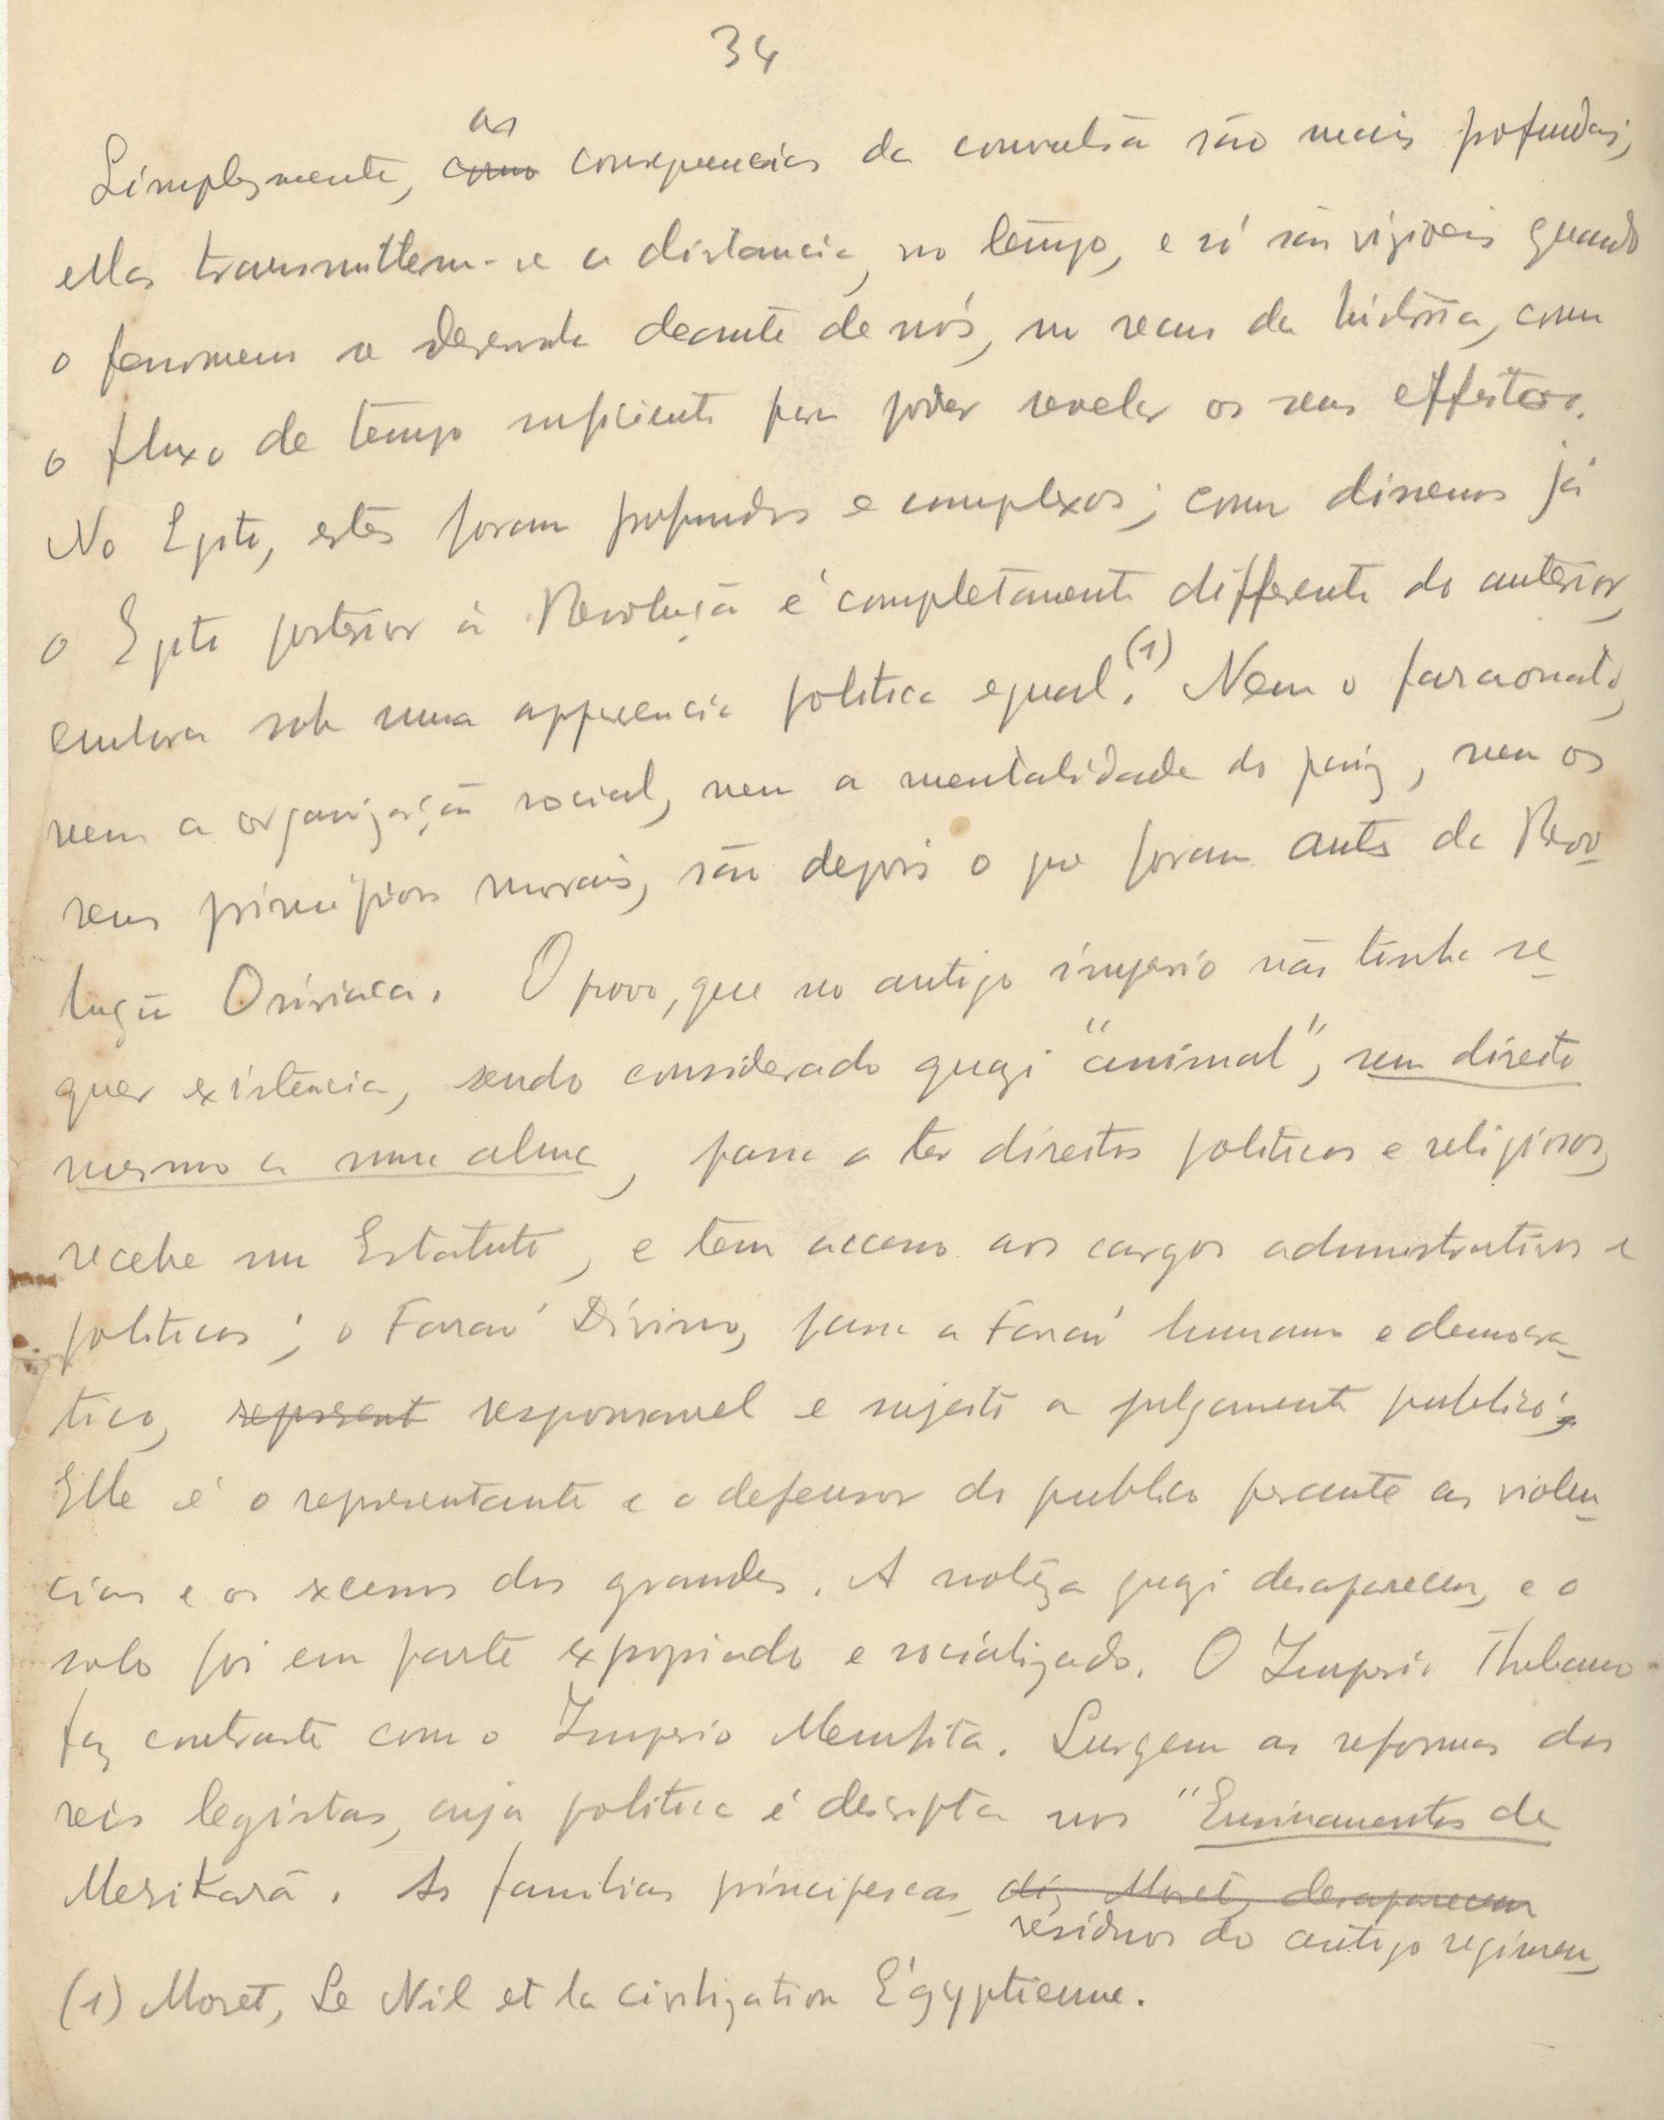 34
as
Simplesmente, como consequencias da convulsão são mais profundas,
ellas transmittem-se a distancia, no tempo, e só são visiveis quando
o fenomeno se desenrola deante de nós, no recuo da historia, com
o fluxo de tempo sufficiente para poder revelar os seus effeitos.
No Egito, estes foram profundos e complexos; como dissemos já
o Egito posterior á Revolução é completamente differente do anterior,
embora sob uma apparencia politica egual. (1) Nem o faraonato,
nem a organização social, nem a mentalidade do paiz, nem os
seus principios morais, são depois o que foram antes da Revo-
lução Osiriaca. O povo, que no antigo imperio não tinha se-
quer existencia, sendo considerado quazi "animal", sem direito
mesmo a uma alma, passa a ter direitos politicos e religiosos,
recebe um Estatuto, e tem accesso aos cargos administrativos e
politicos; o Faraó Divino, passa a Faraó humano e democra-
tico, represent responsavel e sujeito a julgamento publico;
Elle é o representante e o defensor do publico perante as violen-
cias e os excessos dos grandes. A nobreza quazi desapareceu, e o
solo foi em parte expropriado e socializado. O Imperio Thebano
faz contraste com o Imperio Memfita. Surgem as reformas dos
reis legistas, cuja politica é descripta nos "Ensinamentos de
Merikarâ. As familias principescas, diz Moret, desapareceram
residuos do antigo regimen,
(1) Moret, Le Nil et la civilization Égyptienne.